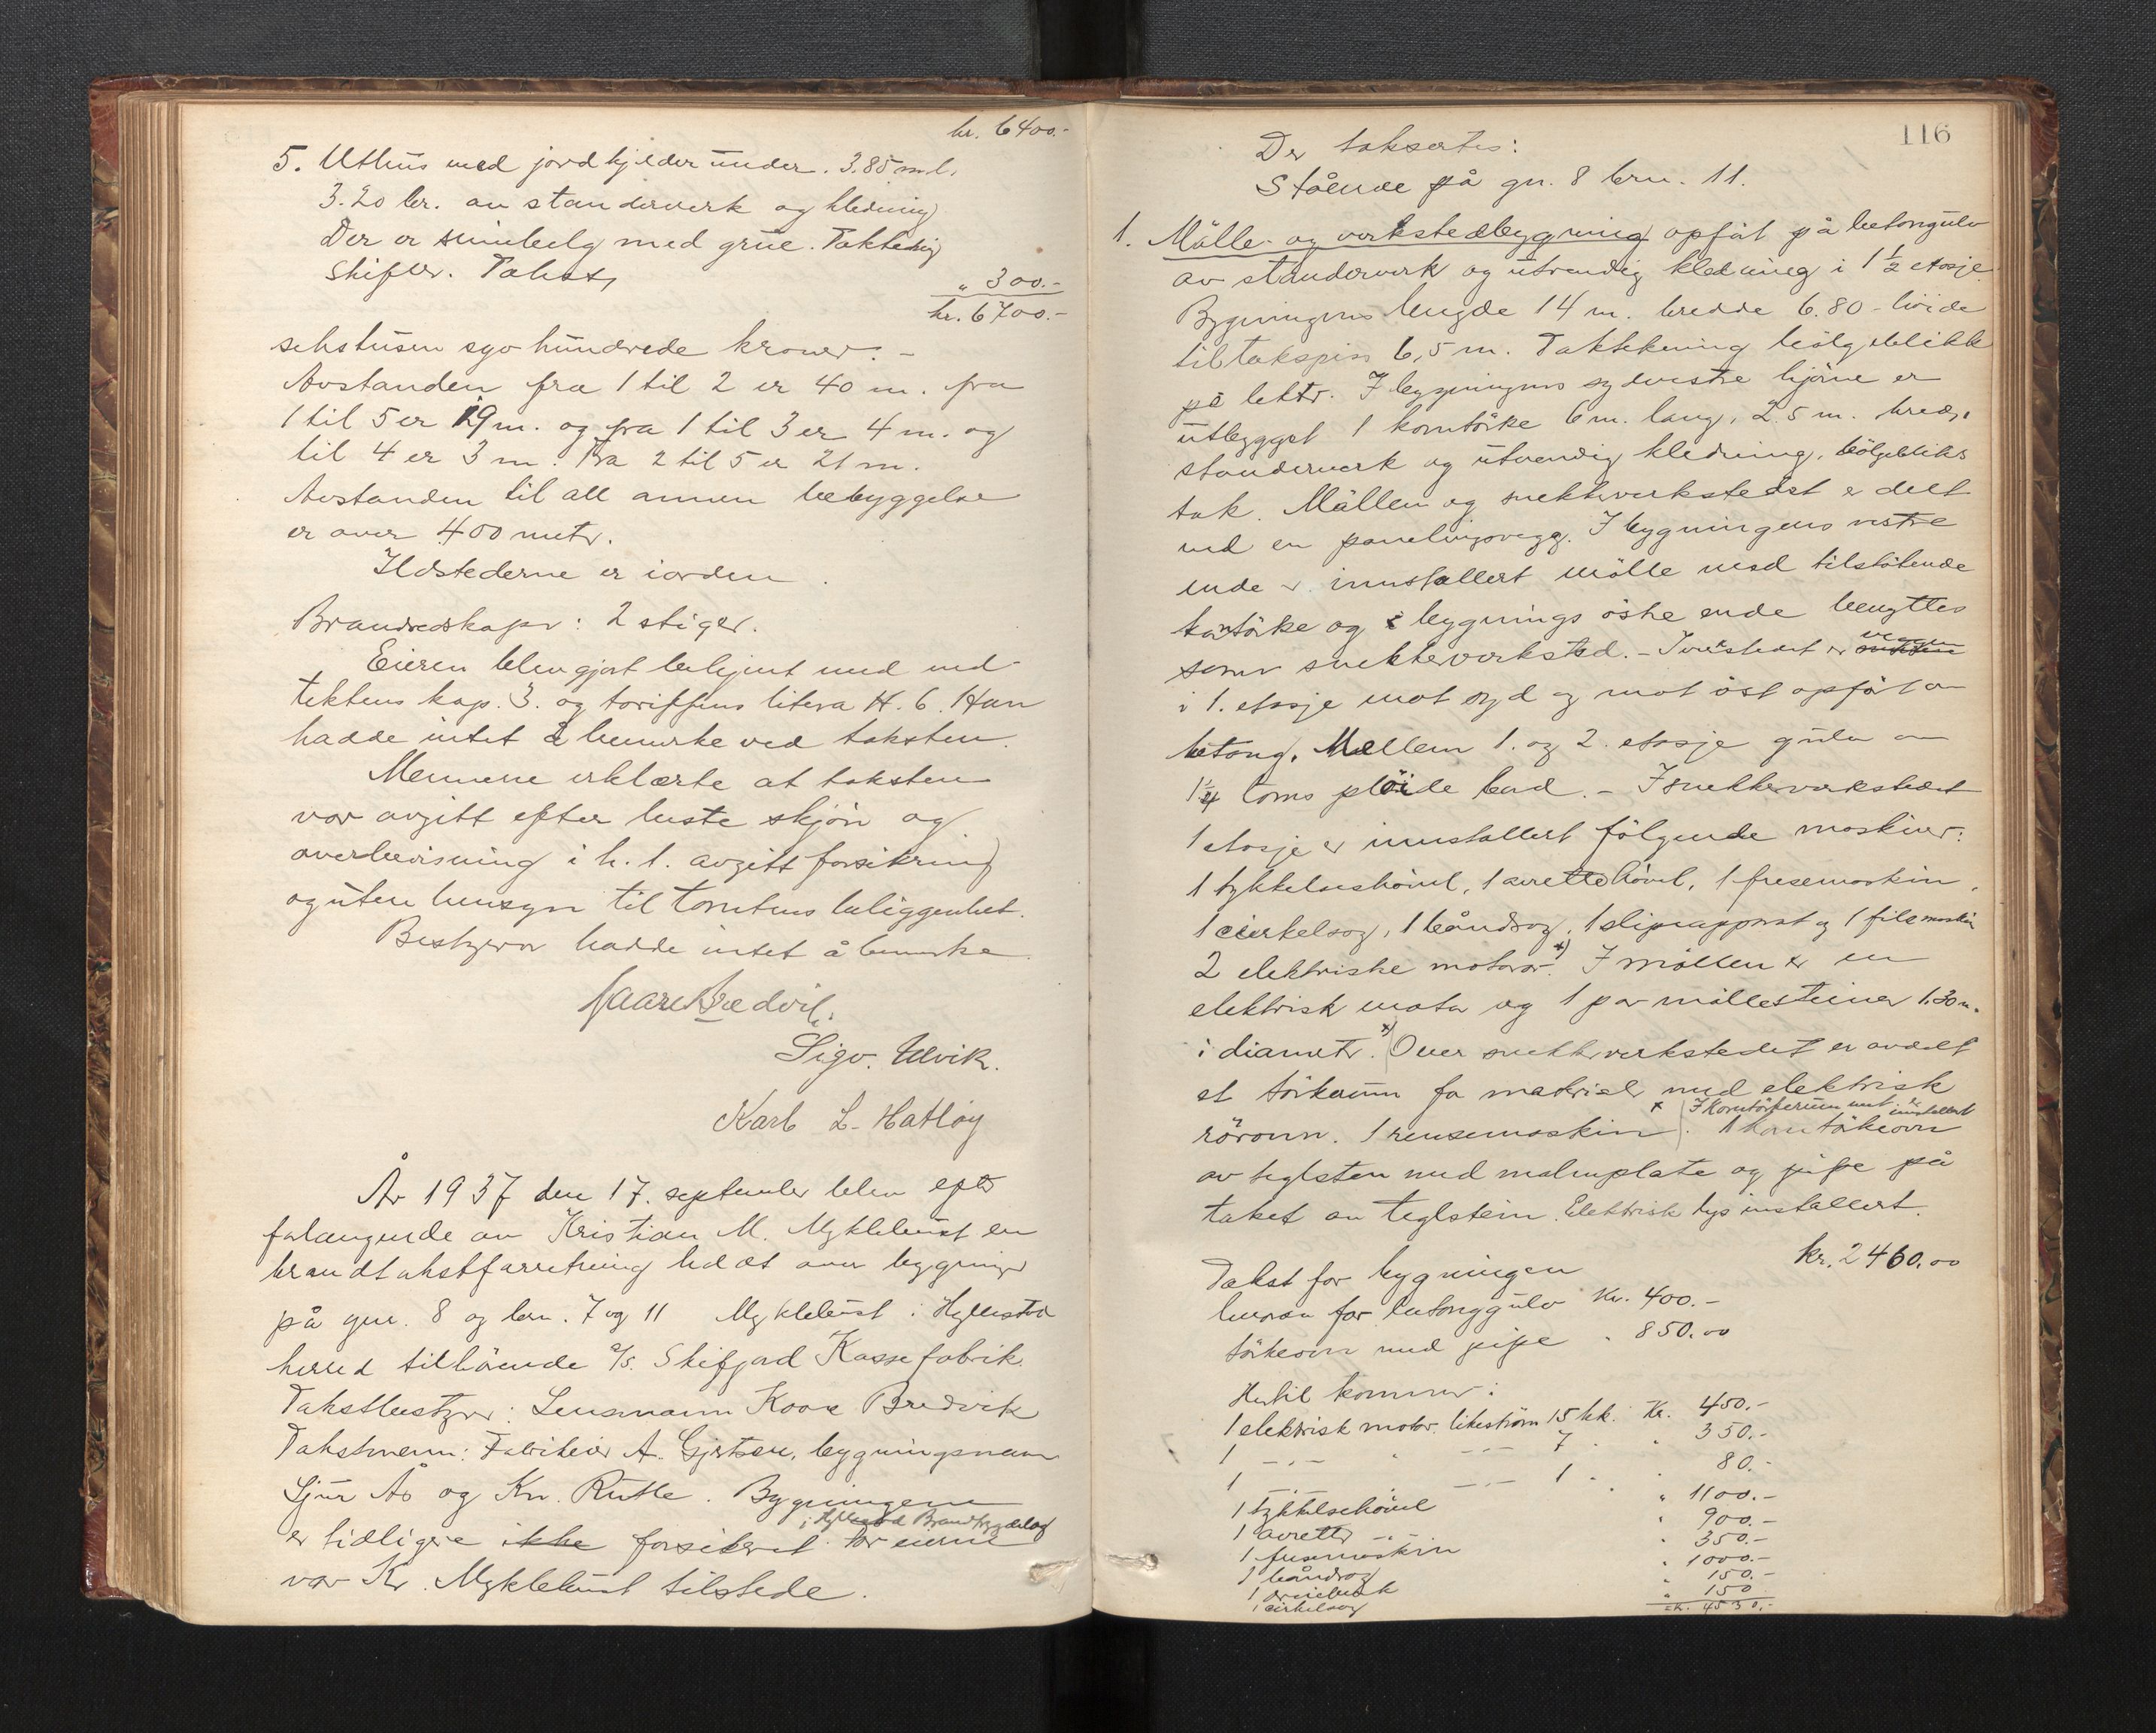 kr. 6400.-
5. Uthus med jordkjelder under. 3.85 m l.
3.20 br. av standerverk og kledning
Der er med grue. Taktekning
skifer. Takst,
" 300.-
kr. 6700.-
sekstusen syv hundrede kroner. -
Avstanden fra 1 til 2 er 40 m. fra
1 til 5 er 19 m. og fra 1 til 3 er 4 m. og
til 4 er 3 m. Fra 2 til 5 er 21 m.
Avstanden til all annen bebyggelse
er over 400 meter.
Ildstederne er iorden.
Brandredskaper: 2 stiger.
Eieren blev gjort bekjent med ved-
tektens kap. 3. og tariffens litera H. 6. Han
hadde intet å bemerke ved taksten.
Mennene erklærte at taksten
var avgitt efter beste skjøn og
overbevisning i h. t. avgitt forsikring
og uten hensyn til tomtens beliggenhet.
Bestyrer hadde intet å bemerke.
Kaare Brædvik.
Sigv. Ulvik.
Karl L. Hatløy
År 1937 den 17. september blev efter
forlangende av Kristian M. Myklebust en
brandtakstforretning holdt over bygninger
på gnr. 8 og brn. 7 og 11 Myklebust i Hyllestad
herred tilhørende A/S. Skifjord Kassefabrik.
Takstbestyrer: Lensmann Kaare Bredvik
Takstmenn: Fabrikeier A. Gjertsen, bygningsmenn
Sjur Ås og Kn. Rutle. Bygningene
i Hyllestad Brandtrygdelag
er tidligere ikke forsikret for eierne
var Kr. Myklebust tilstede.
116
Der taksertes:
Stående på gn. 8 brn. 11.
1. Mølle- og verkstedbygning opført på betongulv
av standerverk og utvendig kledning i 1 1/2 etasje
Bygningens lengde 14 m. bredde 6.80 - høide
til takspiss 6,5 m. Taktekning bølgeblikk
på lekter. I bygningens sydvestre hjørne er
utbygget 1 korntørke 6 m. lang, 2.5 m. bred,
standerverk og utvendig kledning, bølgebliks
tak. Møllen og snekkerverkstedet er delt
ved en panelingsvegg. I bygningens vestre
ende er innstallert mølle med tilstøtende
korntørke og i bygnings østre ende benyttes
veggen
som snekkerverksted. - I verkstedet er
i 1. etasje mot syd og mot øst opført av
betong. Mellem 1. og 2. etasje gulv av
1 1/4 toms pløide bord. - I snekkerverkstedet
1 etasje er innstallert følgende maskiner:
1 tykkelseshøvel, 1 avretterhøvel, 1 fresemaskin,
1 cirkelsag, 1 båndsag, 1 slipeapparat og 1 filemaskin
2 elektriske motorer. x) I møllen er en
elektrisk motor og 1 par møllesteiner 1.30 m.
i diameter. x) Over snekkerverkstedet er avdelt
et tørkerum for materialer med elektrisk
x (I korntørkerum med er innstallert
rørovn. 1 rensemaskin. 1 korntørkeovn
av teglsten med malmplate og pipe på
taket av teglstein. Elektrisk lys installert.
Takst for bygningen kr. 2460.00
herav for betonggulv kr. 400.-
tørkeovn med pipe " 850.00
Hertil kommer:
1 elektrisk motor. likestrøm 15 hk. Kr. 450.-
1 -"- " -"- 7 " " 350.-
1 -"- " -"- 1 " " 80.-
1 tykkelsehøvel " 1100.-
1 avretter -"- " 900.-
1 fresemaskin " 350.-
1 båndsag " 1000.-
1 dreiebenk " 150.-
1 cirkelsag " 150
kr. 4530.-